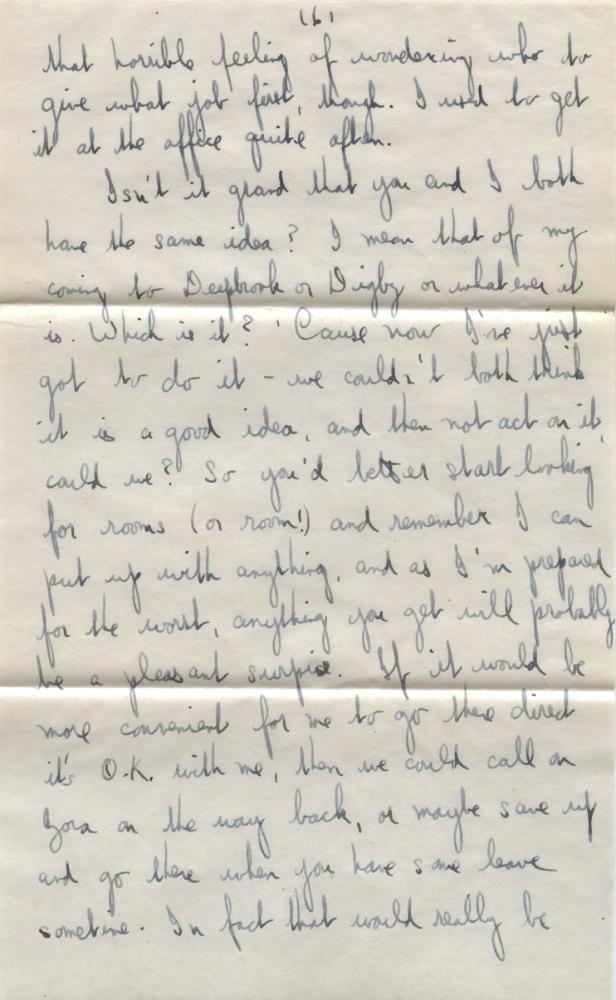 (6)
that horrible feeling of wondering who to
give what job first, though. I used to get
it at the office quite often.
Isn't it grand that you and I both
have the same idea? I mean that of my
coming to Deepbrook or Digby or whatever it
is. Which is it? 'Cause now I've just
got to do it - we couldn't both think
it is a good idea, and then not act on it,
could we? So you'd better start looking
for rooms (or room!) and remember I can
put up with anything, and as I'm prepared
for the worst, anything you get will probably
be a pleasant surpise. If it would be
more convenient for me to go there direct
it's O.K. with me, then we could call on
Zora on the way back, or maybe save up
and go there when you have some leave
sometime. In fact that would really be